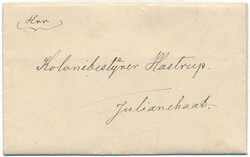 Herr
Kolonibestyrer Hastrup.
Julianehaab.